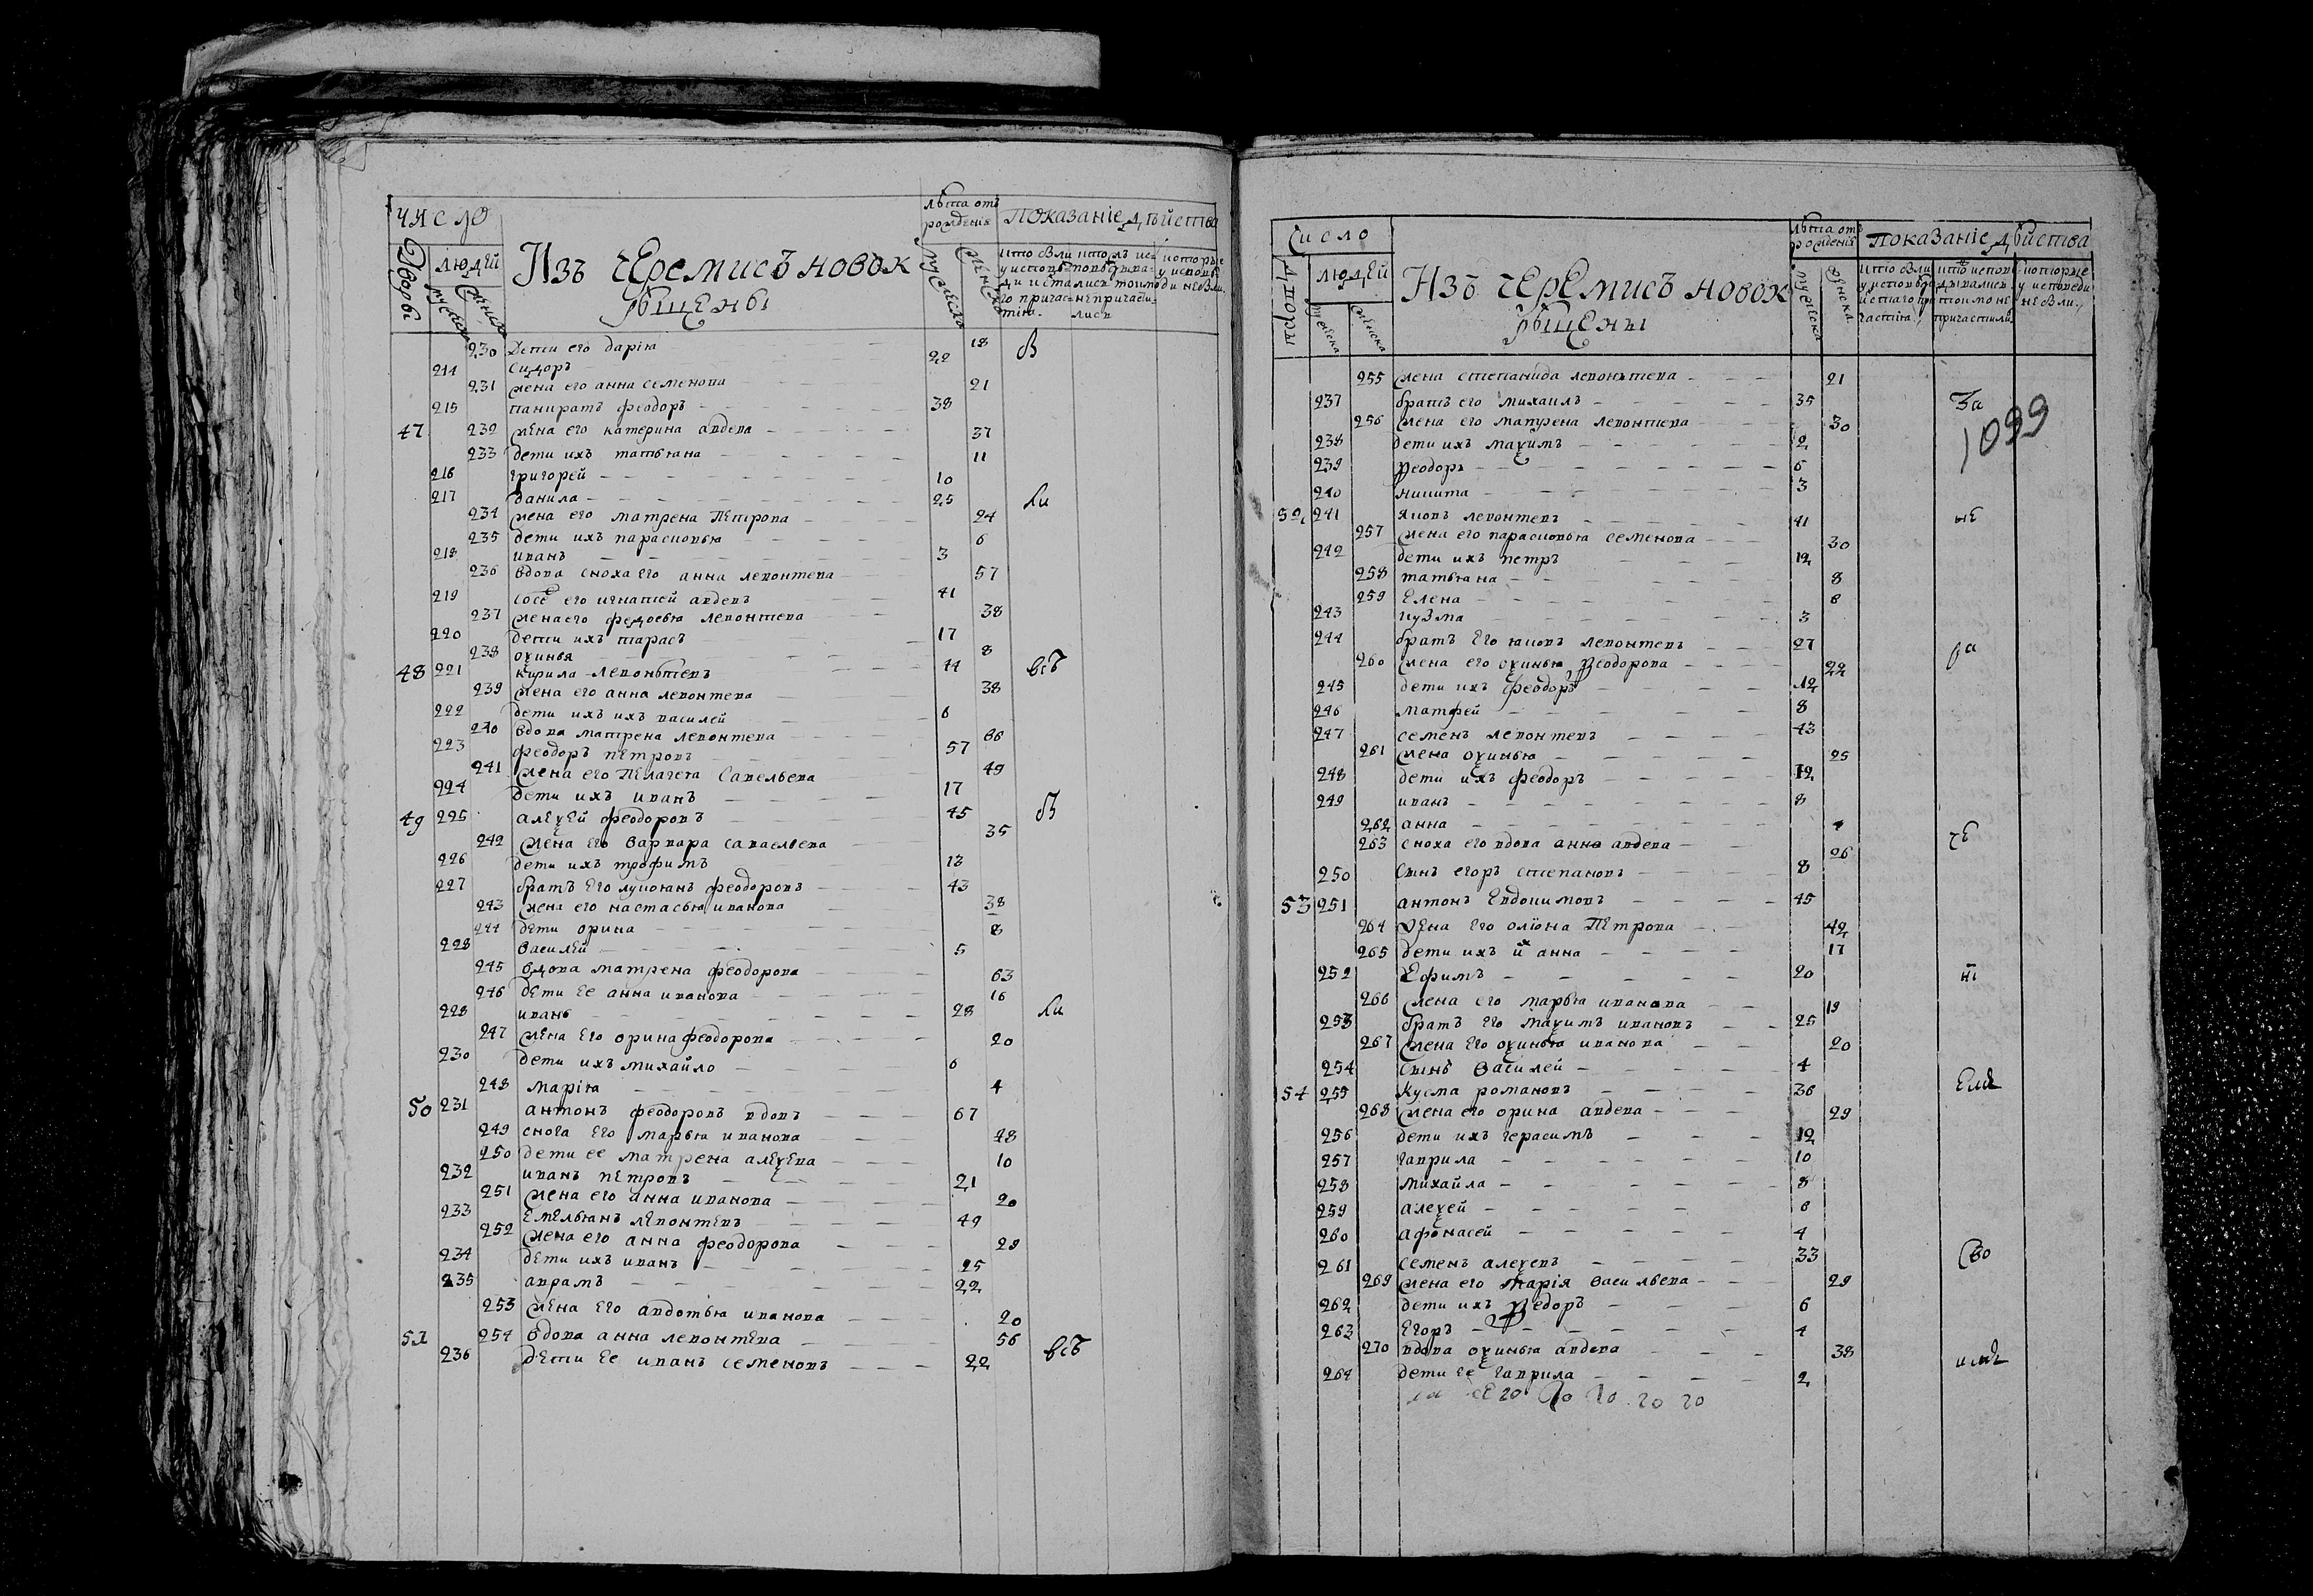 число
Дворы
людей
мужеска
женска
Изъ черемисъ новок
рѣщены
лѣта отъ
рожденія
мужеска
женска
Показаніе дѣйства
230 Дети его дарія 18 в
214 Сидоръ 22
231 жена его анна семенова 21
215 панкратъ феодоръ 38
47 232 жена его катерина авдева 37
233 дети ихъ татьяна 11
216 григорей 10
217 данила 25 ли
234 жена его матрена Петрова 24
235 дети ихъ парасковья 6
218 иванъ 3
236 вдова сноха его анна левонтева 57
219 сосе его игнатей авдевъ 41
237 жена его федосья левонтева 38
220 дети ихъ тарасъ 17
238 оѯинья 8
48 221 кирила левонътевъ 44 всѣ
239 жена его анна левонтева 38
222 дети ихъ ихъ василей 6
240 вдова матрена левонтева 66
223 феодоръ петровъ 57
241 жена его Пелагея Савельева 49
224 дети ихъ иванъ 17
49 225 алеѯей феодоровъ 45 в
242 жена его варвара савельева 35
226 дети ихъ трофимъ 13
227 братъ его лукоянъ феодоровъ 43
243 жена его настасья иванова 38
244 дети орина 8
228 василей 5
245 вдова матрена феодорова 63
246 дети ее анна иванова 16
229 иванъ 28 ли
247 жена его орина феодорова 20
230 дети ихъ михайло 6
248 марія 4
50 231 антонъ феодоровъ вдовъ 67
249 сноха его марья иванова 48
250 дети ее матрена алеѯева 10
232 иванъ петровъ 21
251 жена его анна иванова 20
233 емельянъ левонтевъ 49
252 жена его анна феодорова 29
234 дети ихъ иванъ 25
235 аврамъ 22
253 жена его авдотья иванова 20
51 254 вдова анна левонтева 56 всѣ
236 дети ее иванъ семеновъ 22
число
Дворы
людей
мужеска
женска
Изъ черемисъ новок
рѣщены
лѣта отъ
рожденія
мужеска
женска
показаніе дѣйства
255 жена степанида левонътева 21
237 братъ его михаилъ 35 За
1099
256 жена его матрена левонтева 30
238 дети ихъ маѯимъ 2
239 Феодоръ 6
240 никита 3
52 241 яковъ левонтевъ 41 не
257 жена его парасковья семенова 30
242 дети ихъ петръ 12
258 татьяна 8
259 Елена 6
243 кузма 3
244 братъ его яковъ левонтевъ 27 ра
260 жена его оѯинья Феодорова 22
245 дети ихъ феодоръ 12
246 матфей 8
247 семенъ левонтевъ 43
261 жена оѯинья 25
248 дети ихъ феодоръ 12
249 иванъ 8
262 анна 4 че
263 сноха его вдова анна авдева 26
250 сынъ егоръ степановъ 8
53 251 антонъ Евдокимовъ 45
264 жена его олiона Петрова 42
265 дети ихъ анна 17
252 Ефимъ 20 нi
266 жена его марья иванова 19
253 братъ его маѯимъ ивановъ 25
267 жена его оѯинья иванова 20
254 сынъ василей 4
54 255 Кусма романовъ 36
268 жена его орина авдева 29
256 дети ихъ герасимъ 12
257 гаврила 10
258 михайла 8
259 алеѯей 6
260 афонасей 4
261 семенъ алеѯевъ 33 Сво
269 жена его марія васильева 29
262 дети ихъ Федоръ 6
263 Егоръ 4
270 вдова оѯинья авдева 38
264 дети ее гаврила 2